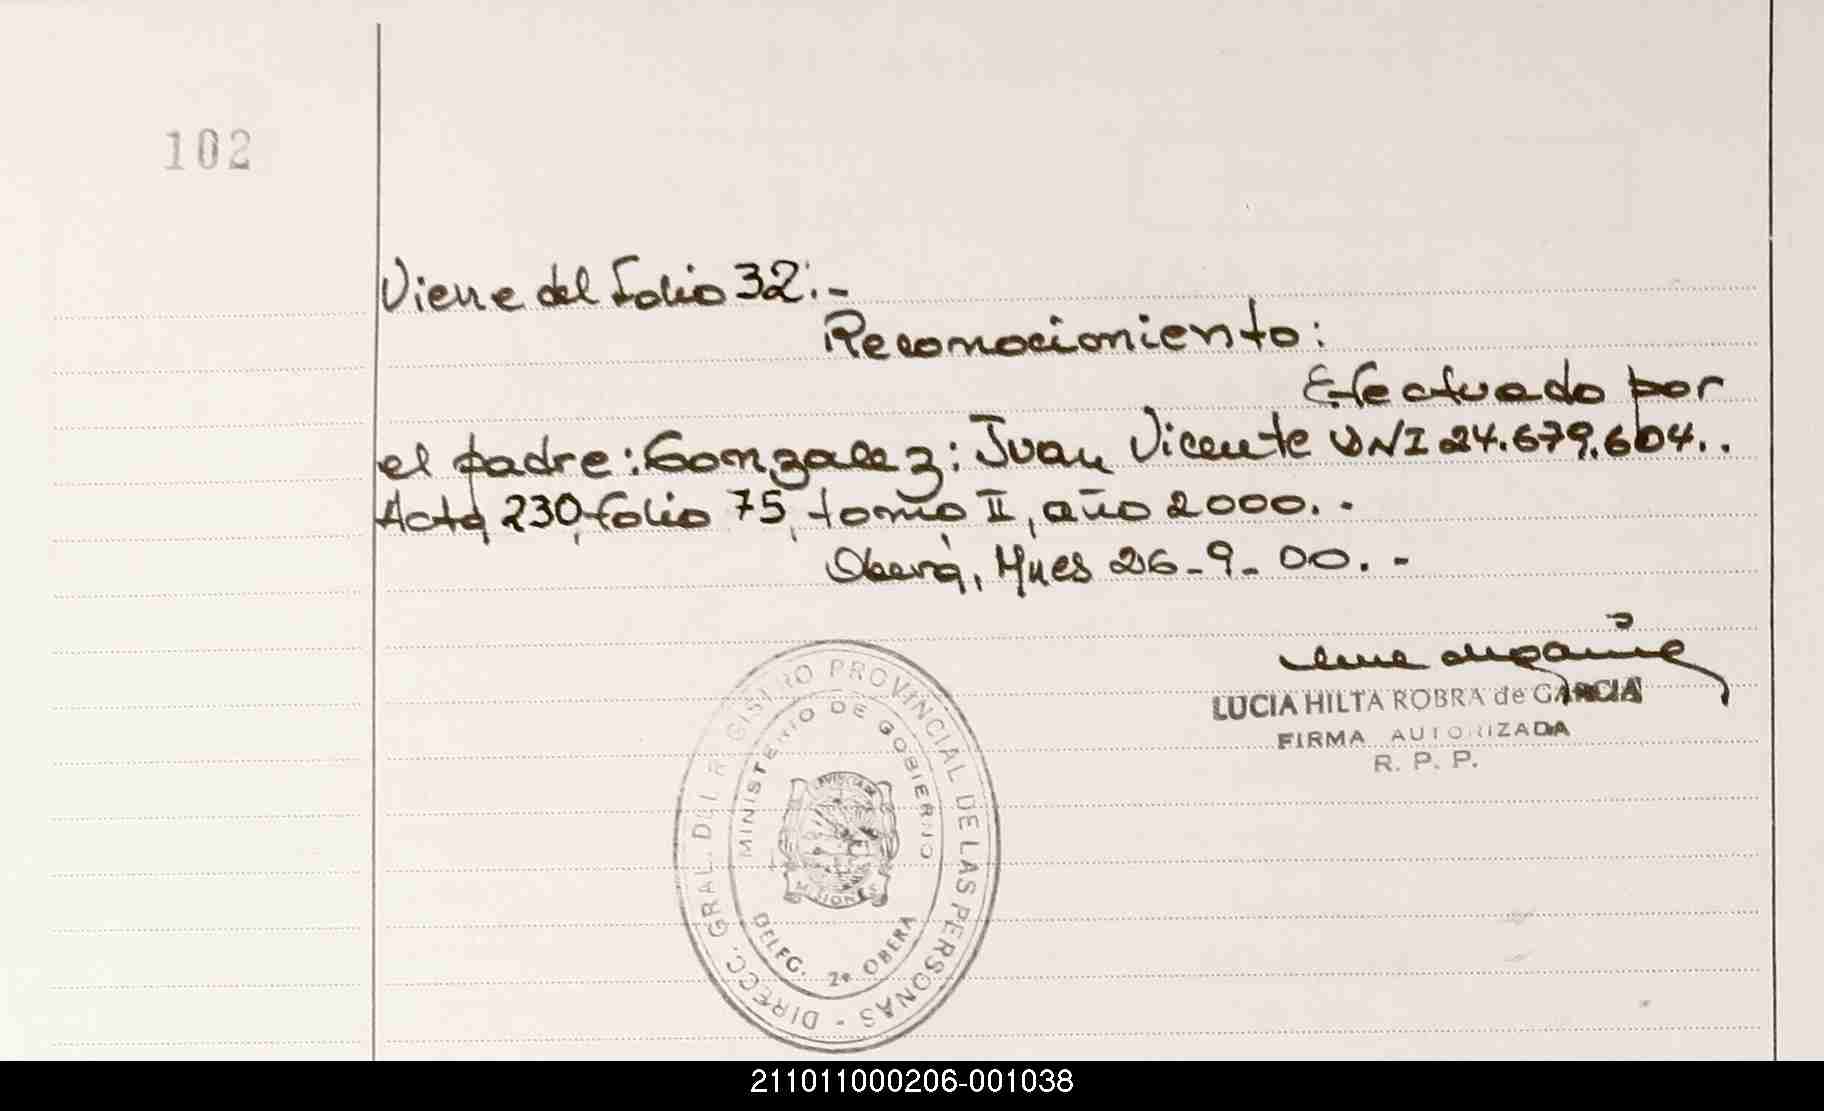 102
Viene del Folio 32:.-
Reconocimiento:
Efectuado por
el padre: Gonzalez: Juan Vicente DNI 24.679.604..
Acta 230, folio 75, tomo II, año 2000..-
Oberá, Mnes 26-9-00..-
LUCIA HILTA ROBRA de GARCIA
FIRMA AUTORIZADA
R. P. P.
DIRECC. GRAL. DEL REGISTRO PROVINCIAL DE LAS PERSONAS -
MINISTERIO DE GOBIERNO
PROVINCIA DE
MISIONES
DELEG. 2ª OBERA
211011000206-001038